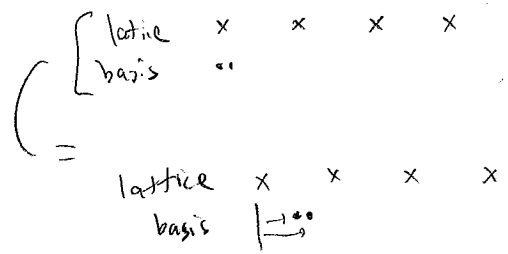 lattice x x x x
basis
=
lattice x x x x
basis